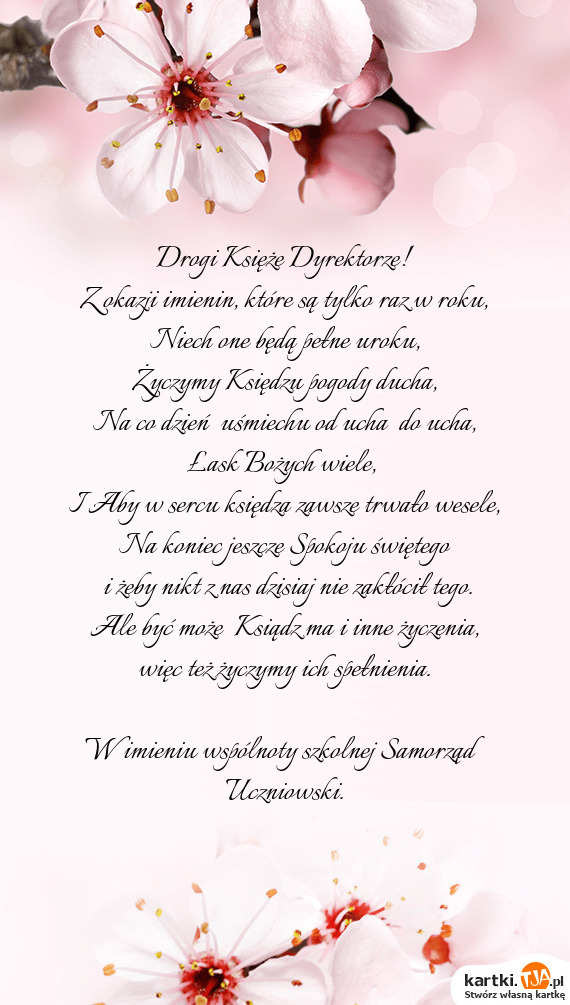 Drogi Księżę Dyrektorzę!
Z okazji imienin, które są tylko raz w roku,
Niech one będą pełne uroku,
Życzymy Księdzu pogody ducha,
Na co dzień uśmiechu od ucha do ucha,
Łask Bożych wiele,
I Aby w sercu księdza zawsze trwało wesele,
Na koniec jeszcze Spokoju świętego
i żeby nikt z nas dzisiaj nie zakłócił tego.
Ale być może Ksiądz ma i inne życzenia,
więc też życzymy ich spełnienia.
W imieniu wspólnoty szkolnej Samorząd
Uczniowski.
kartki.TJA.pl
Stwórz własną kartkę